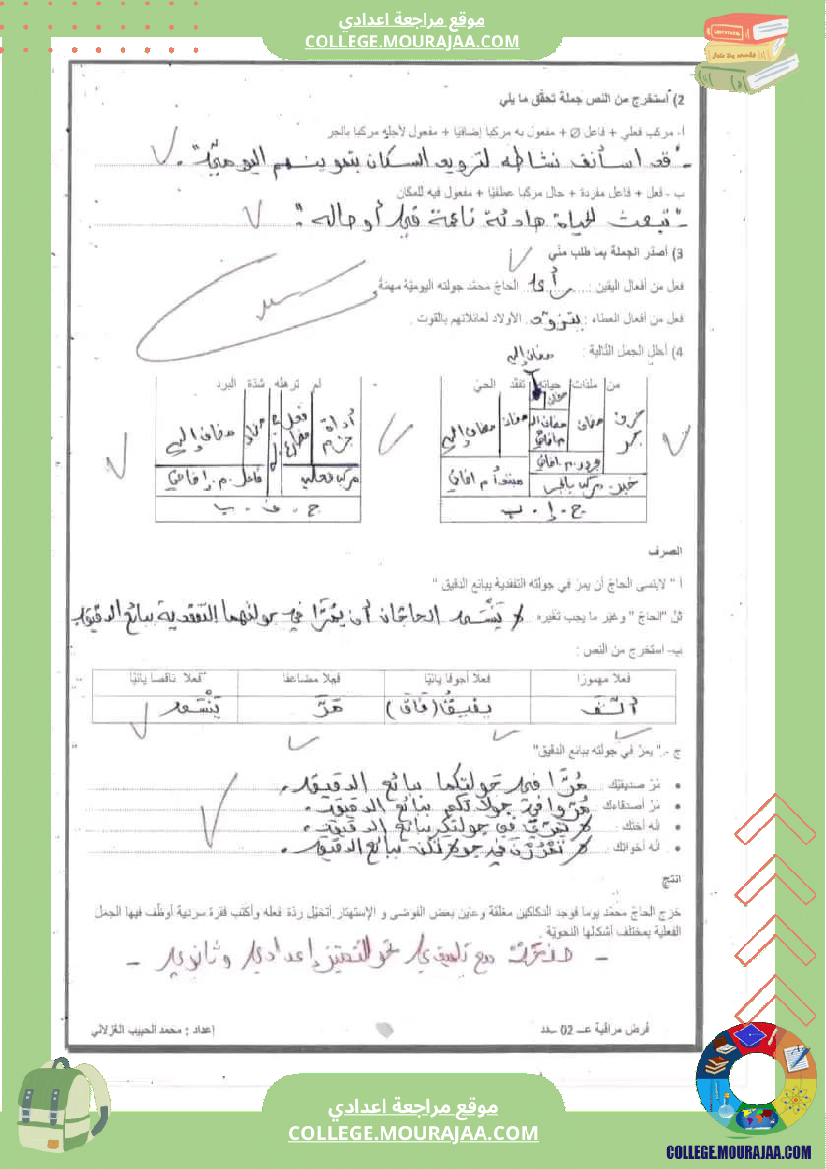 موقع مراجعة اعدادي
COLLEGE.MOURAJAA.COM
2) أستخرج من النص جملة تحقّق ما يلي
أ- مركب فعلي + فاعل Ø + مفعول به مركبا إضافيّا + مفعول لأجله مركبا بالجر
- "قد استأنف نشاطه لتزويد السكان بتموينهم اليوميّ".
ب - فعل + فاعل مفردة + حال مركبا عطفيّا + مفعول فيه للمكان
- "تبعث الحياة هادئة ناعمة في أوصاله".
3) أصدّر الجملة بما طلب منّي
فعل من أفعال اليقين : رأى الحاجّ محمّد جولته اليوميّة مهمّة
فعل من أفعال العطاء : يتزوّد الأولاد لعائلاتهم بالقوت .
4) أحلّل الجمل التّالية :
مضاف إليه
من ملذات حياته تفقد الحيّ
لم ترهقه شدّة البرد
حرف جر مضاف مضاف مضاف مضاف إليه
أداة جزم فعل مضارع مضاف مضاف إليه
مجرور م.إضافي
خبر مركب بالجر مبتدأ م إضافي
مركب فعلي فاعل م. إضافي
ج . إ . ب
ج . ف . ب
الصرف
أ " لا ينسى الحاجّ أن يمرّ في جولته التفقدية ببائع الدقيق "
ثنّ "الحاجّ " وغيّر ما يجب تغيّره لا يَنْسَى الحاجّان أن يمُرَّا في جولتهما التفقدية ببائع الدقيق
ب- استخرج من النص :
فعلا مهموزا فعلا أجوفا يائيّا فعلا مضاعفا فعلا ناقصا يائيّا
يفيقُ (فَاقَ) مَرَّ يَنْسَى
ج -." يمرّ في جولته ببائع الدقيق"
• مُرْ صديقيْك مُرَّا في جَولتِكما ببائع الدقيق.
• مُرْ أصدقاءك مُرّوا في جولاتكم ببائع الدقيق.
• إنْه أختك لا تمرّي في جولتك ببائع الدقيق.
• إنْه أخواتك لا تَمْرُرْنَ في جولاتكنّ ببائع الدقيق.
انتج
خرج الحاجّ محمّد يوما فوجد الدكاكين مغلقة وعاين بعض الفوضى و الإستهتار. أتخيّل ردّة فعله وأكتب فقرة سردية أوظّف فيها الجمل
الفعلية بمختلف أشكالها النحويّة
- مع تلميذي نحو التميّز إعدادي وثانوي -
فرض مراقبة عــ 02 ــدد
إعداد : محمد الحبيب الغزلاني
موقع مراجعة اعدادي
COLLEGE.MOURAJAA.COM
COLLEGE.MOURAJAA.COM